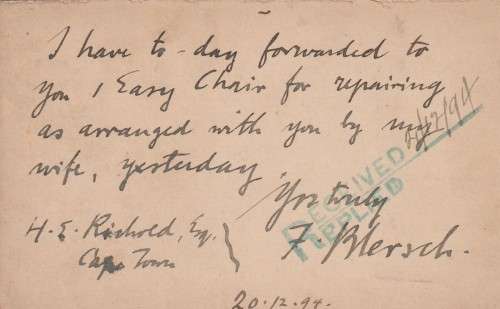 I have to-day forwarded to
you 1 Easy Chair for repairing
as arranged with you by my
wife, yesterday
Yrs truly
F. Blersch.
H. E. Richold, Esq.
Cape Town
20.12.94.
RECEIVED
REPLIED
21/12/94